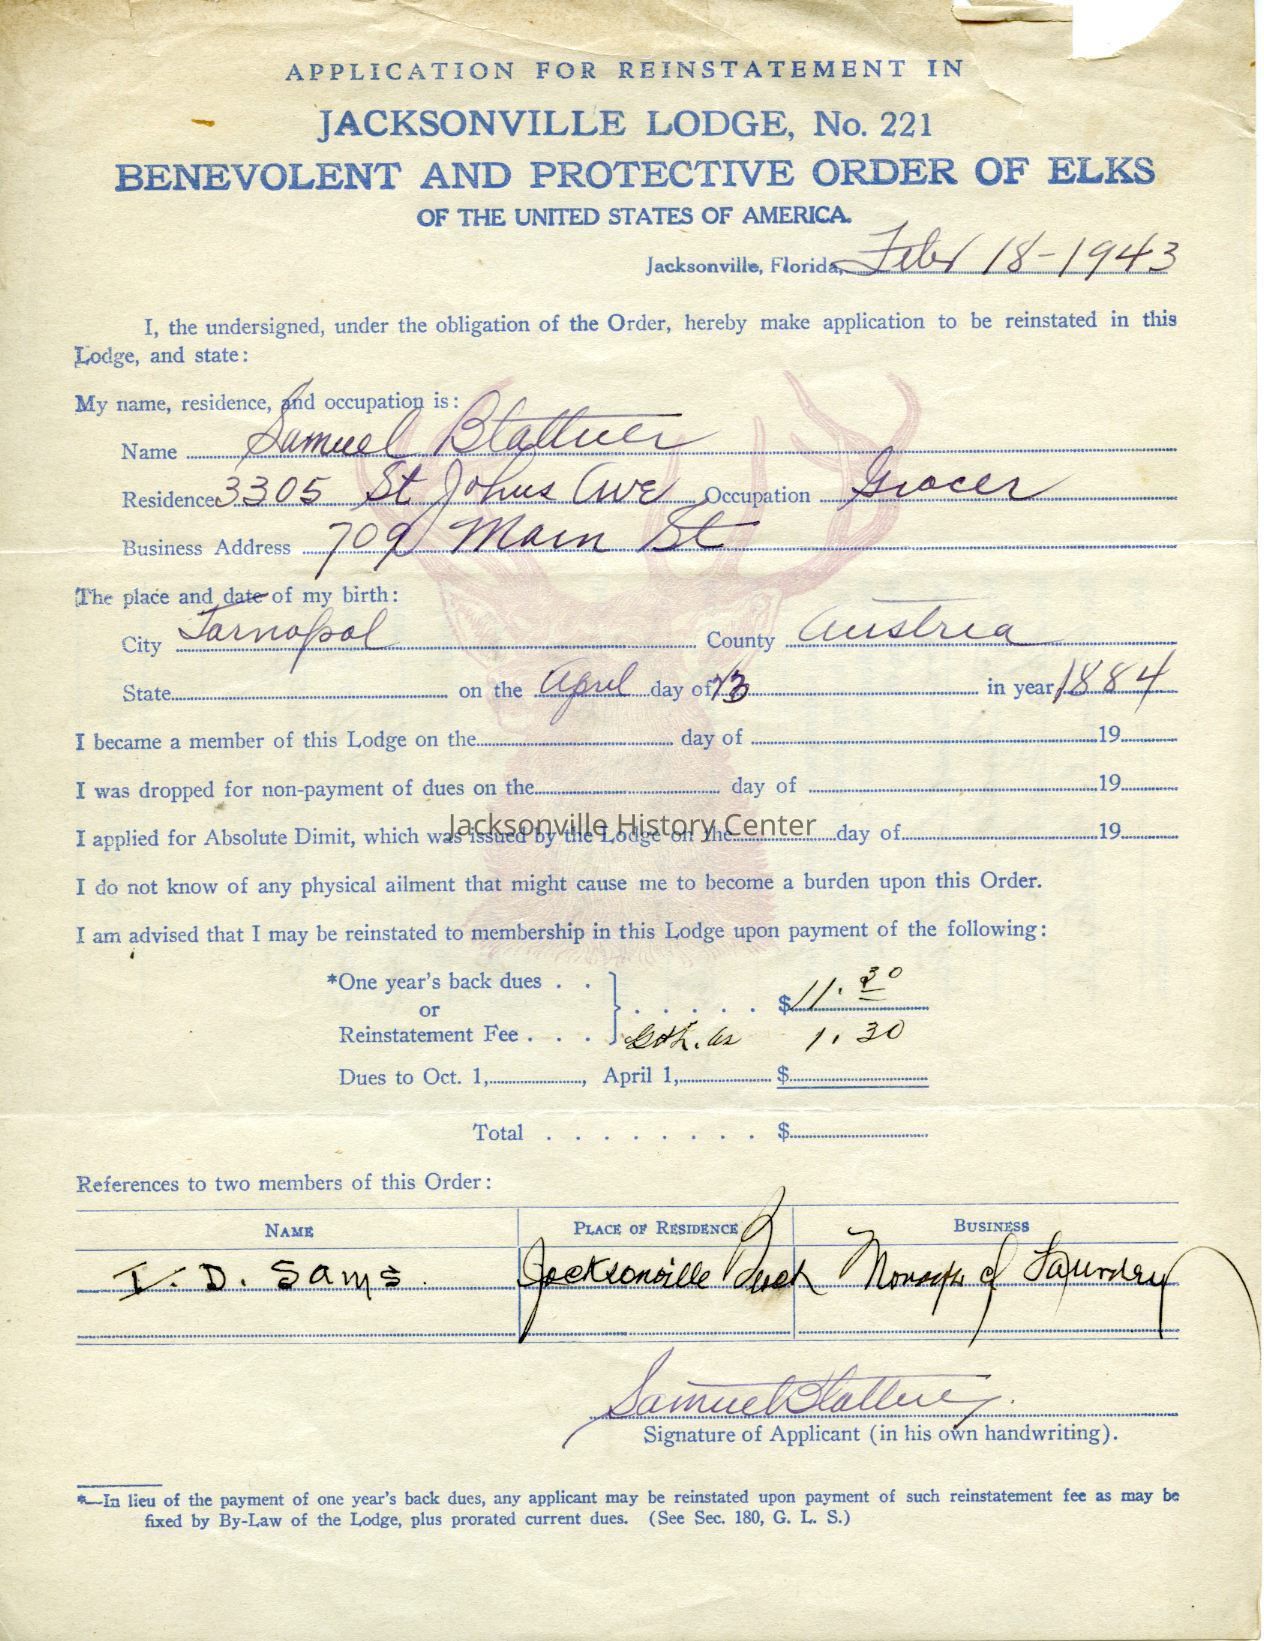 APPLICATION FOR REINSTATEMENT IN
JACKSONVILLE LODGE, No. 221
BENEVOLENT AND PROTECTIVE ORDER OF ELKS
OF THE UNITED STATES OF AMERICA.
Jacksonville, Florida, Feb 18-1943
I, the undersigned, under the obligation of the Order, hereby make application to be reinstated in this
Lodge, and state:
My name, residence, and occupation is:
Name Samuel Blattner
Residence 3305 St Johns Ave Occupation Grocer
Business Address 709 Main St
The place and date of my birth:
City Tarnopol County Austria
State on the April day of 13 in year 1884
I became a member of this Lodge on the day of 19
I was dropped for non-payment of dues on the day of 19
I applied for Absolute Dimit, which was issued by the Lodge on the day of 19
Jacksonville History Center
I do not know of any physical ailment that might cause me to become a burden upon this Order.
I am advised that I may be reinstated to membership in this Lodge upon payment of the following:
*One year's back dues . . $11.30
or
Reinstatement Fee . . . 1.30
Dues to Oct. 1, , April 1, $
Total . . . . . . . . $
References to two members of this Order:
NAME PLACE OF RESIDENCE BUSINESS
I. D. Sams. Jacksonville Laundry
Samuel Blattner.
Signature of Applicant (in his own handwriting).
*—In lieu of the payment of one year's back dues, any applicant may be reinstated upon payment of such reinstatement fee as may be
fixed by By-Law of the Lodge, plus prorated current dues. (See Sec. 180, G. L. S.)